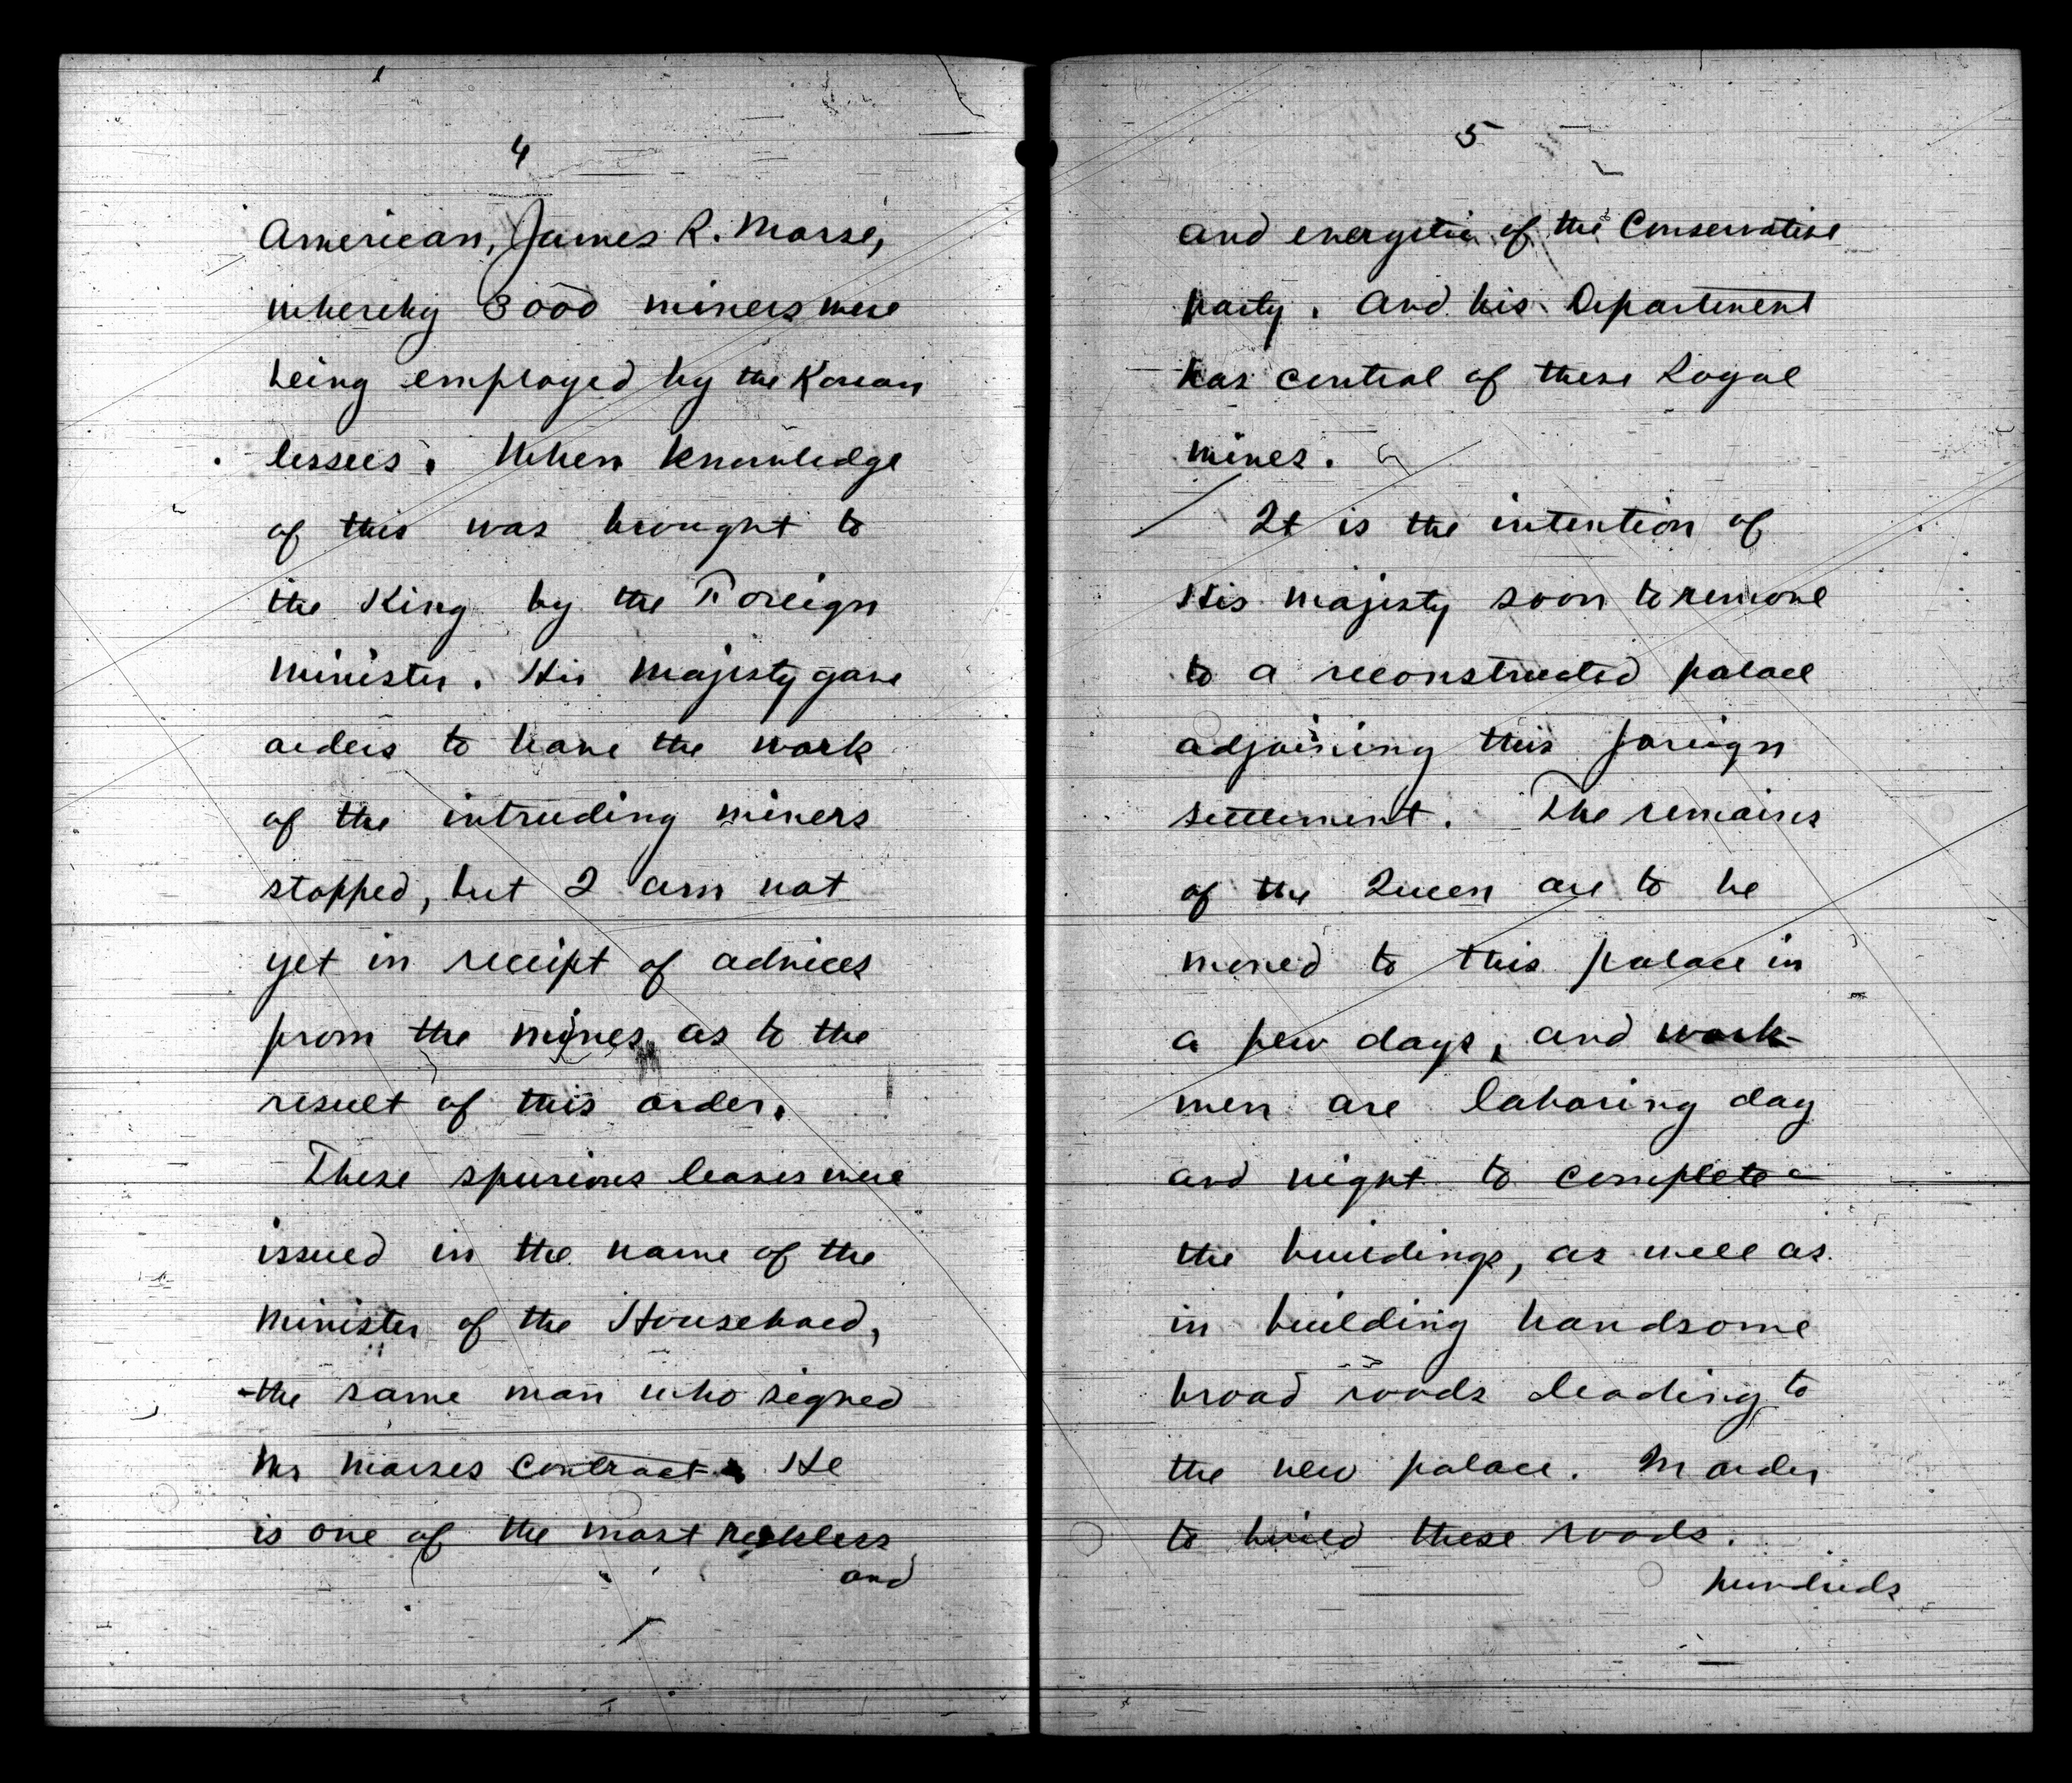 4
American, James R. Morse,
whereby 3000 miners were
being employed by the Korean
lessees. When knowledge
of this was brought to
the King by the Foreign
Minister. His Majesty gave
orders to have the work
of the intruding miners
stopped, but I am not
yet in receipt of advices
from the mines as to the
result of this order.
These spurious leases were
issued in the name of the
Minister of the Household,
the same man who signed
Mr Morses contract. He
is one of the most reckless
and
5
and energetic of the Conservative
party. And his Department
has control of these Royal
mines.
It is the intention of
His Majesty soon to remove
to a reconstructed palace
adjoining this foreign
settlement. The remains
of the Queen are to be
moved to this palace in
a few days, and work-
men are laboring day
and night to complete
the buildings, as well as
in building handsome
broad roads leading to
the new palace. In order
to build these roads.
hundreds